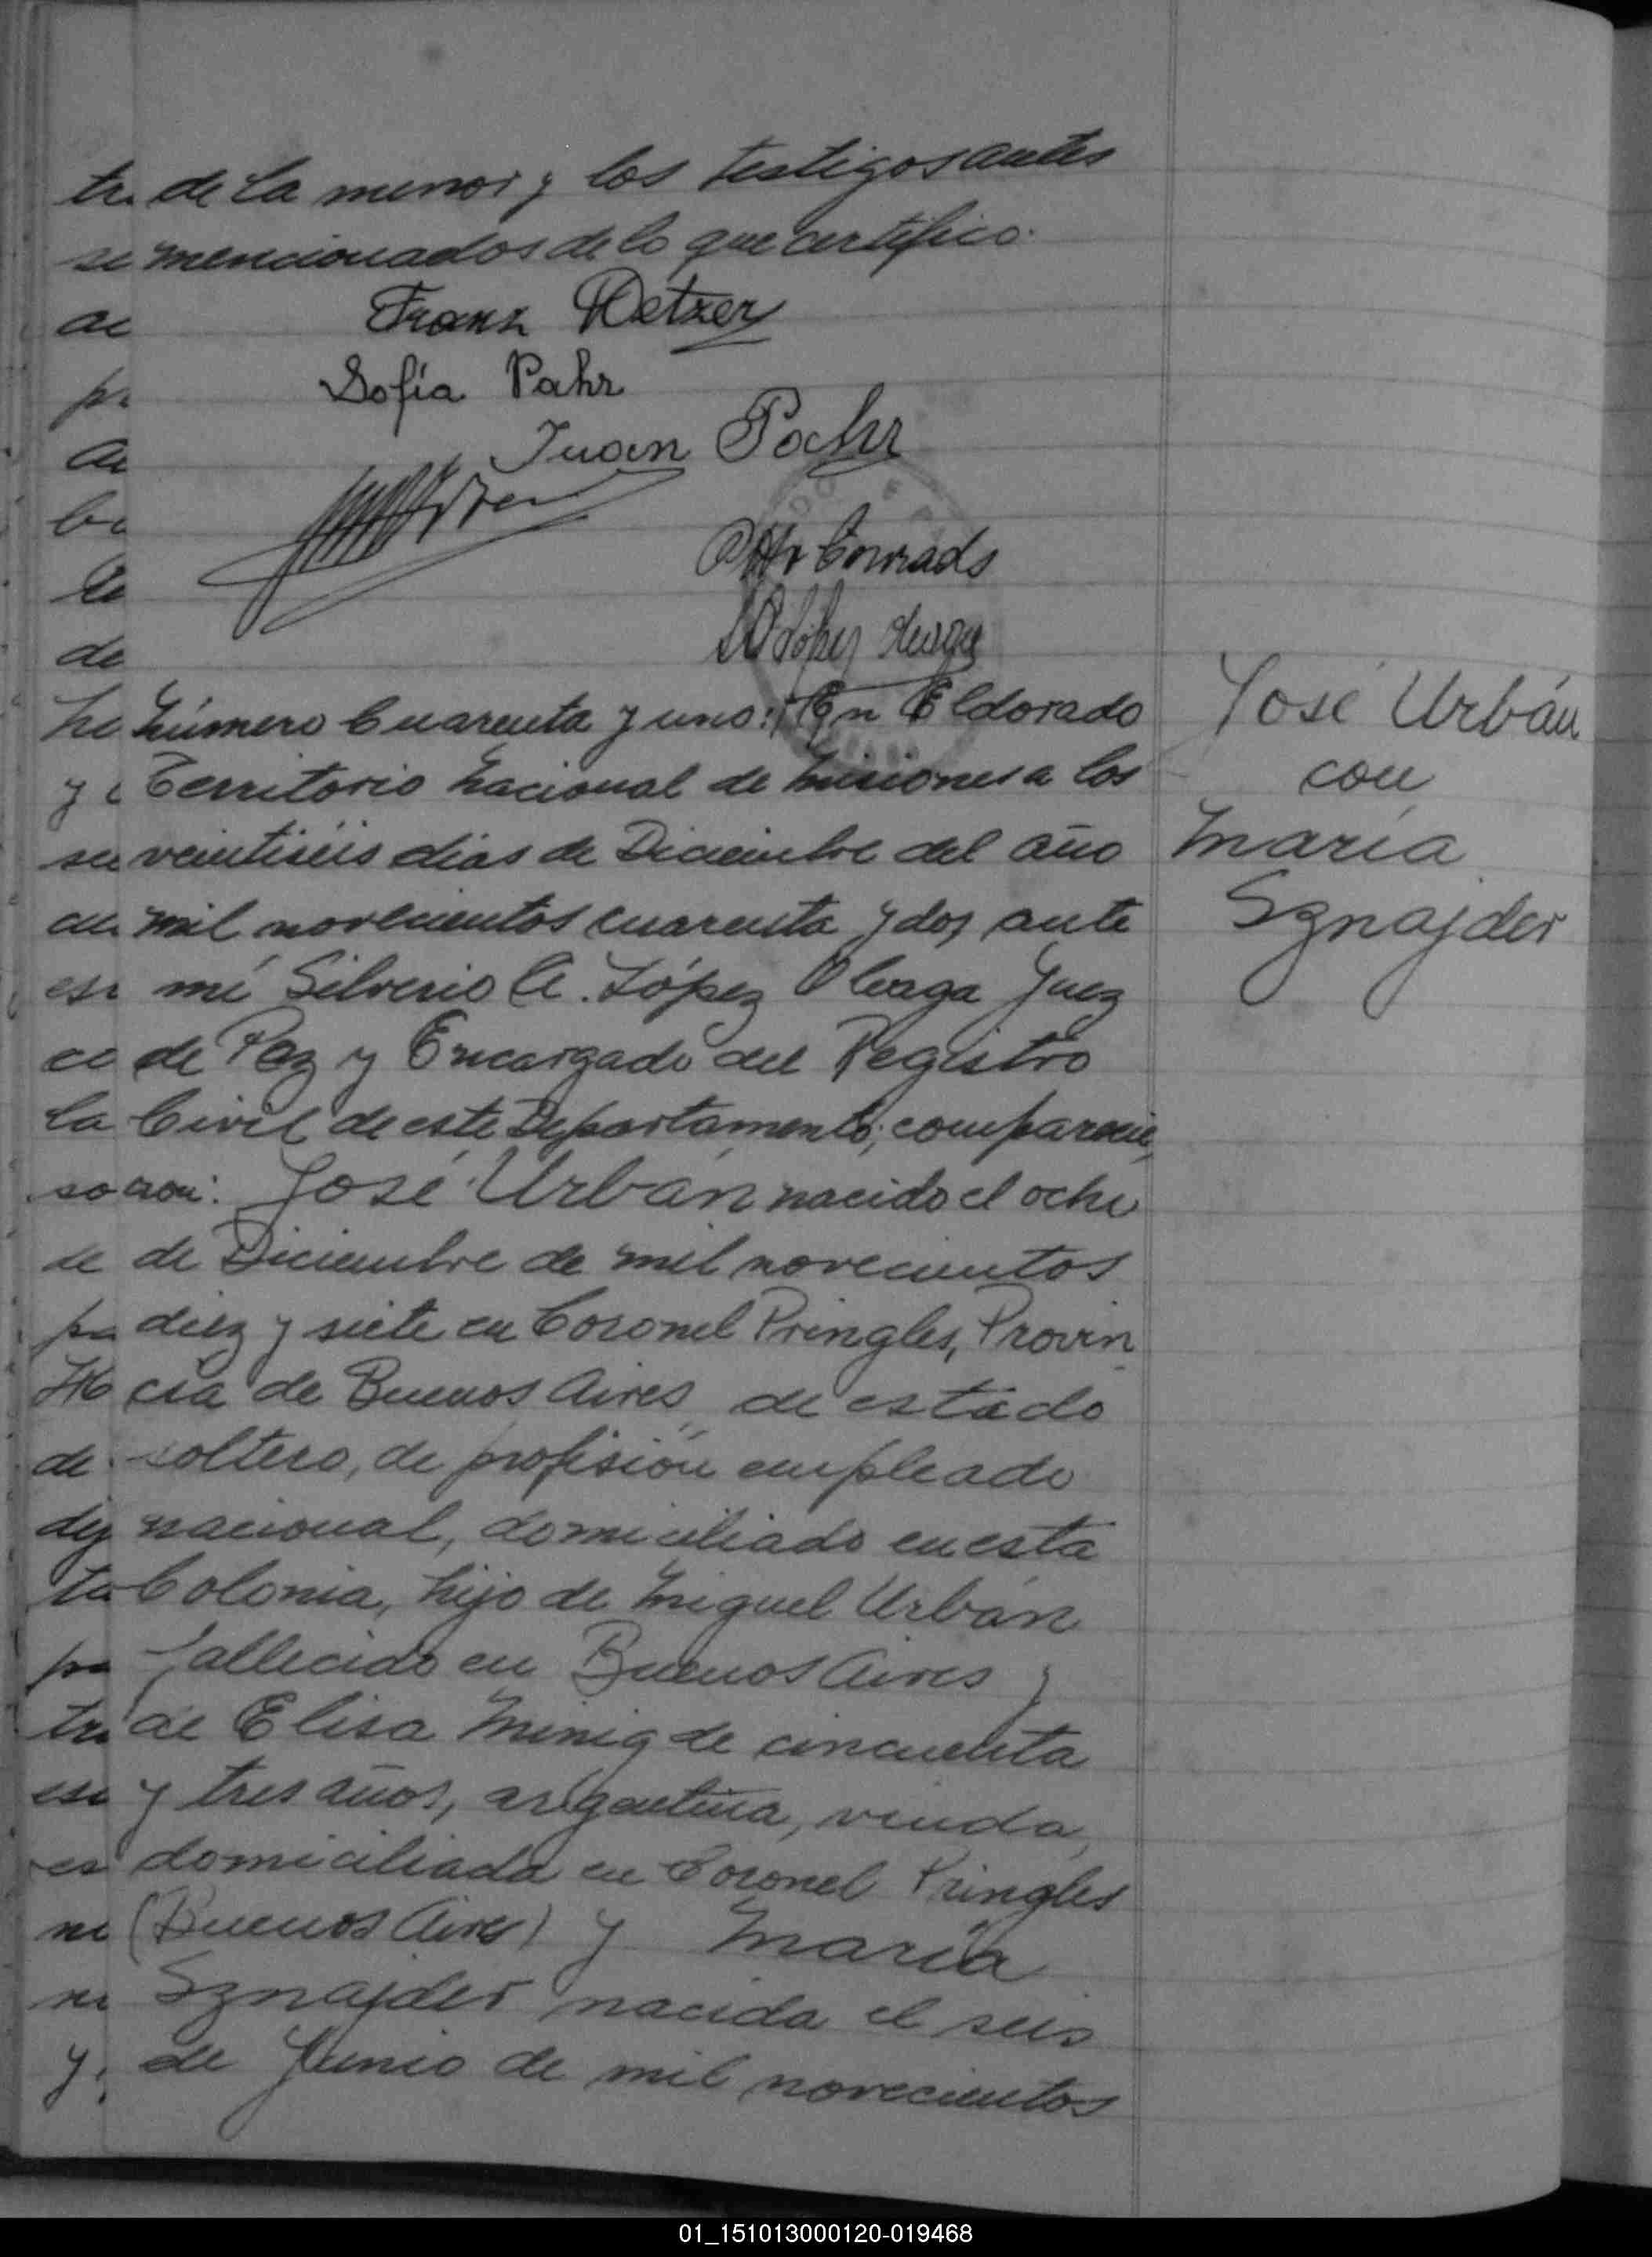 de la menor y los testigos antes
mencionados de lo que certifico.
Franz Wetzer
Sofía Pahr
Juan Pahr
Otto Conrads
López Oleaga
Número Cuarenta y uno: En Eldorado
Territorio Nacional de Misiones a los
veintiséis días de Diciembre del año
mil novecientos cuarenta y dos ante
mí Silverio A. López Oleaga Juez
de Paz y Encargado del Registro
Civil de este Departamento; comparecie
ron: José Urbán nacido el ocho
de Diciembre de mil novecientos
diez y siete en Coronel Pringles, Provin
cia de Buenos Aires, de estado
soltero, de profisión empleado
nacional, domiciliado en esta
Colonia, hijo de Miguel Urbán
fallecido en Buenos Aires y
de Elisa Minig de cincuenta
y tres años, argentina, viuda,
domiciliada en Coronel Pringles
(Buenos Aires) y María
Sznajder nacida el seis
de Junio de mil novecientos
José Urbán
con
María
Sznajder
01_151013000120-019468